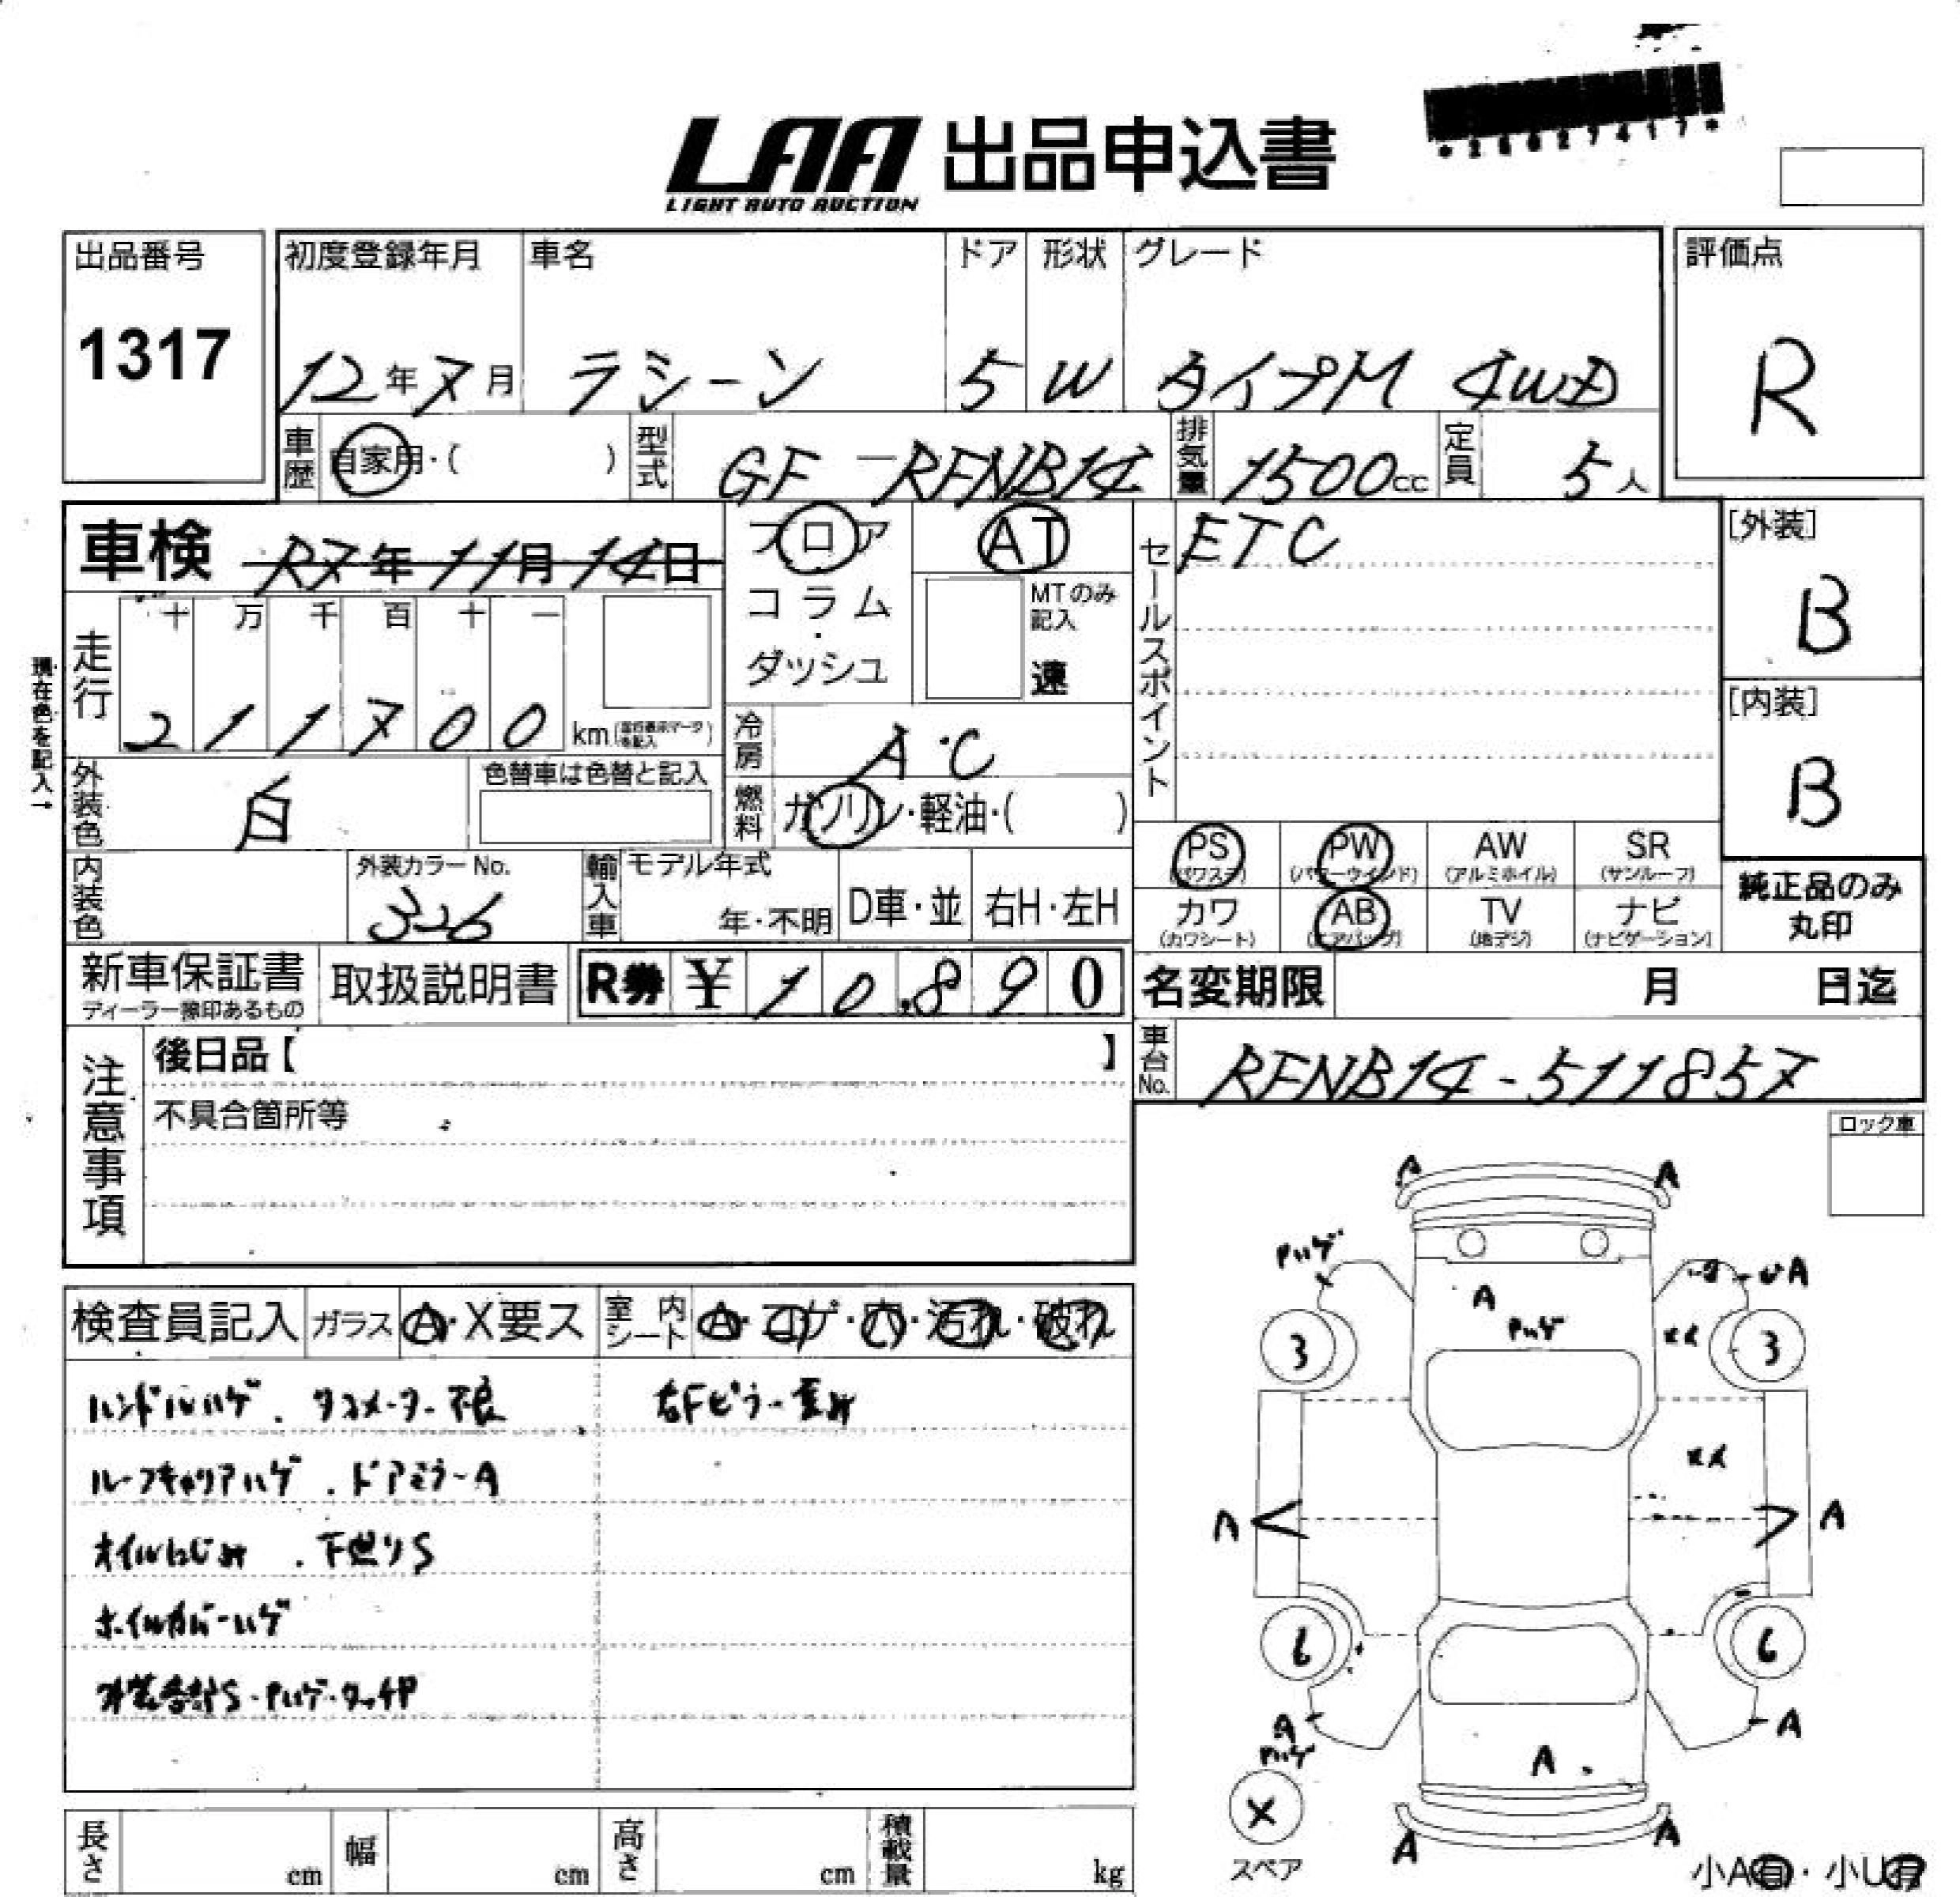 LAA 出品申込書
LIGHT AUTO AUCTION
出品番号
1317
初度登録年月
12年7月
車名
ラシーン
ドア
5
形状
W
グレード
タイプM 4WD
評価点
R
車歴
自家用・( )
型式
GF-RFNB14
排気量
1500cc
定員
5人
車検 R7年11月14日
フロア
コラム
・
ダッシュ
AT
MTのみ
記入
速
セールスポイント
ETC
[外装]
B
[内装]
B
走行
十 万 千 百 十 一
2 1 1 7 0 0 km
現在色を記入→
外装色
白
色替車は色替と記入
冷房
A・C
燃料
ガソリン・軽油・( )
内装色
外装カラーNo.
326
輸入車
モデル年式
年・不明
D車・並
右H・左H
PS
(パワステ)
PW
(パワーウインド)
AW
(アルミホイル)
SR
(サンルーフ)
カワ
(カワシート)
AB
(エアバッグ)
TV
(地デジ)
ナビ
(ナビゲーション)
純正品のみ
丸印
新車保証書
ディーラー捺印あるもの
取扱説明書
R券 ¥ 10,890
名変期限 月 日迄
車台No.
RFNB14-511857
注意事項
後日品【 】
不具合箇所等
ロック車
検査員記入
ガラス
A・X要ス
室内シート
A・コゲ・穴・汚れ・破れ
ハンドルハゲ．タコメーター不良
右Fピラー歪み
ルーフキャリアハゲ．ドアミラーA
オイルにじみ．下廻りS
ホイルカバーハゲ
外装各部S・Pハゲ・タッチP
A
A
Pハゲ
A
Pハゲ
UA
XX
3
3
XX
A
A
6
6
A
Pハゲ
A
A
X
スペア
A
A
小A有・小U有
長さ cm
幅 cm
高さ cm
積載量 kg